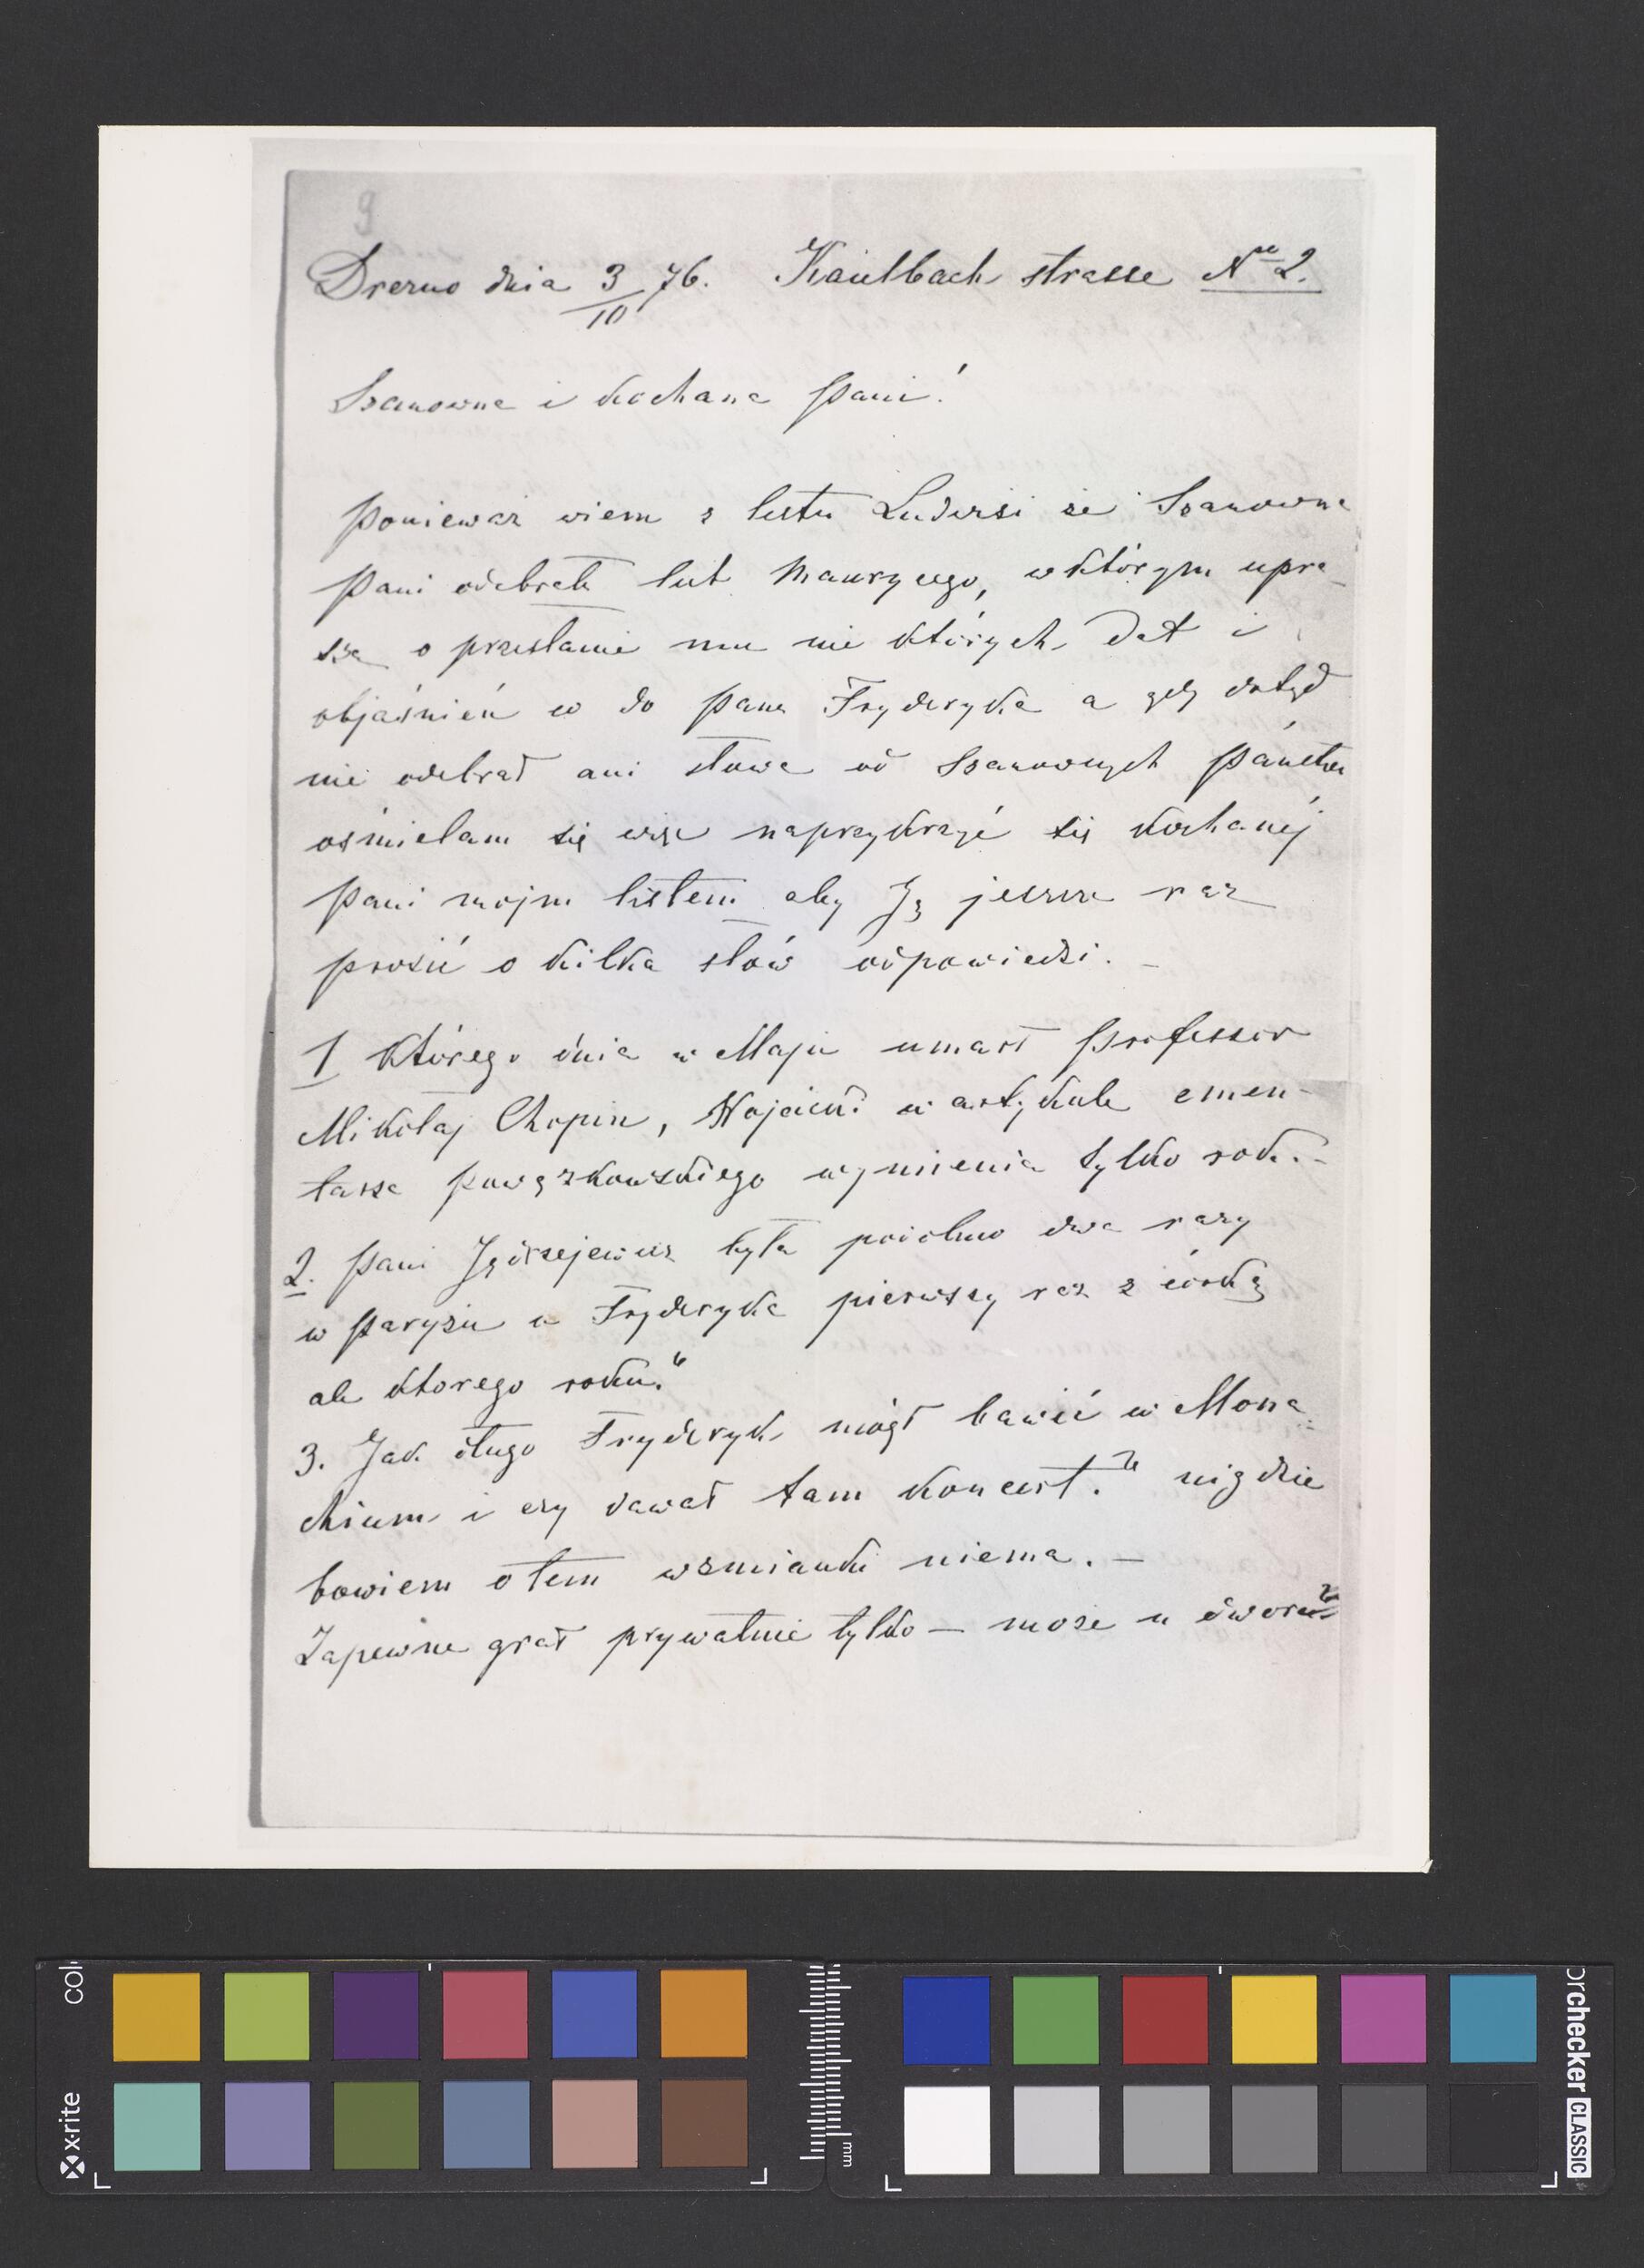 9
Drezno dnia 3/10 76. Kaulbach strasse Nro 2.
Szanowna i kochana Pani!
Ponieważ wiem z listu Ludwisi że Szanowna
Pani odebrała list Maurycego, w którym upra-
sza o przesłanie mu nie których dat i
objaśnień co do Pana Fryderyka a gdy dotąd
nie odebrał ani słowa od Szanownych Państwa
ośmielam się więc naprzykrzyć się kochanéj
Pani mojm listem aby Ją jeszcze raz
prosić o kilka słów odpowiedzi. –
1 Którego dnia w Maju umarł Professor
Mikołaj Chopin, Wojcicki w artykule cmen-
tarza powązkowskiego wymienia tylko rok. –
2. Pani Jędrzejewicz była podobno dwa razy
w Paryżu u Fryderyka pierwszy raz z córką
ale ktorego roku?
3. Jak długo Fryderyk mógł bawić w Mona-
chium i czy dawał tam koncert? nigdzie
bowiem o tem wzmianki niema. –
Zapewne grał prywatnie tylko – może u dworu?
col
x-rite
mm
orchecker CLASSIC